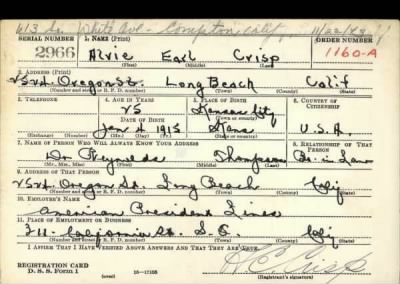 613 So. White Ave. - Compton, Calif. 11/22/43
SERIAL NUMBER 1. NAME (Print) ORDER NUMBER
2966 Alvie Earl Crisp 1160-A
(First) (Middle) (Last)
2. ADDRESS (Print)
Oregon St. Long Beach Calif
(Number and street or R. F. D. number) (Town) (County) (State)
3. TELEPHONE 4. AGE IN YEARS 5. PLACE OF BIRTH 6. COUNTRY OF CITIZENSHIP
25 Kansas City
(Town or county)
DATE OF BIRTH
Jan 4 1915 Kans U.S.A.
(Exchange) (Number) (Mo.) (Day) (Yr.) (State or country)
7. NAME OF PERSON WHO WILL ALWAYS KNOW YOUR ADDRESS 8. RELATIONSHIP OF THAT PERSON
Reynolds Thompson Bro. in Law
(Mr., Mrs., Miss) (First) (Middle) (Last)
9. ADDRESS OF THAT PERSON
Oregon St. Long Beach Calif
(Number and street or R. F. D. number) (Town) (County) (State)
10. EMPLOYER'S NAME
American President Lines
11. PLACE OF EMPLOYMENT OR BUSINESS
311 - California St. S.F. Calif
(Number and street or R. F. D. number) (Town) (County) (State)
I AFFIRM THAT I HAVE VERIFIED ABOVE ANSWERS AND THAT THEY ARE TRUE.
REGISTRATION CARD
D. S. S. Form 1 (over) 16-17105
A E Crisp
(Registrant's signature)